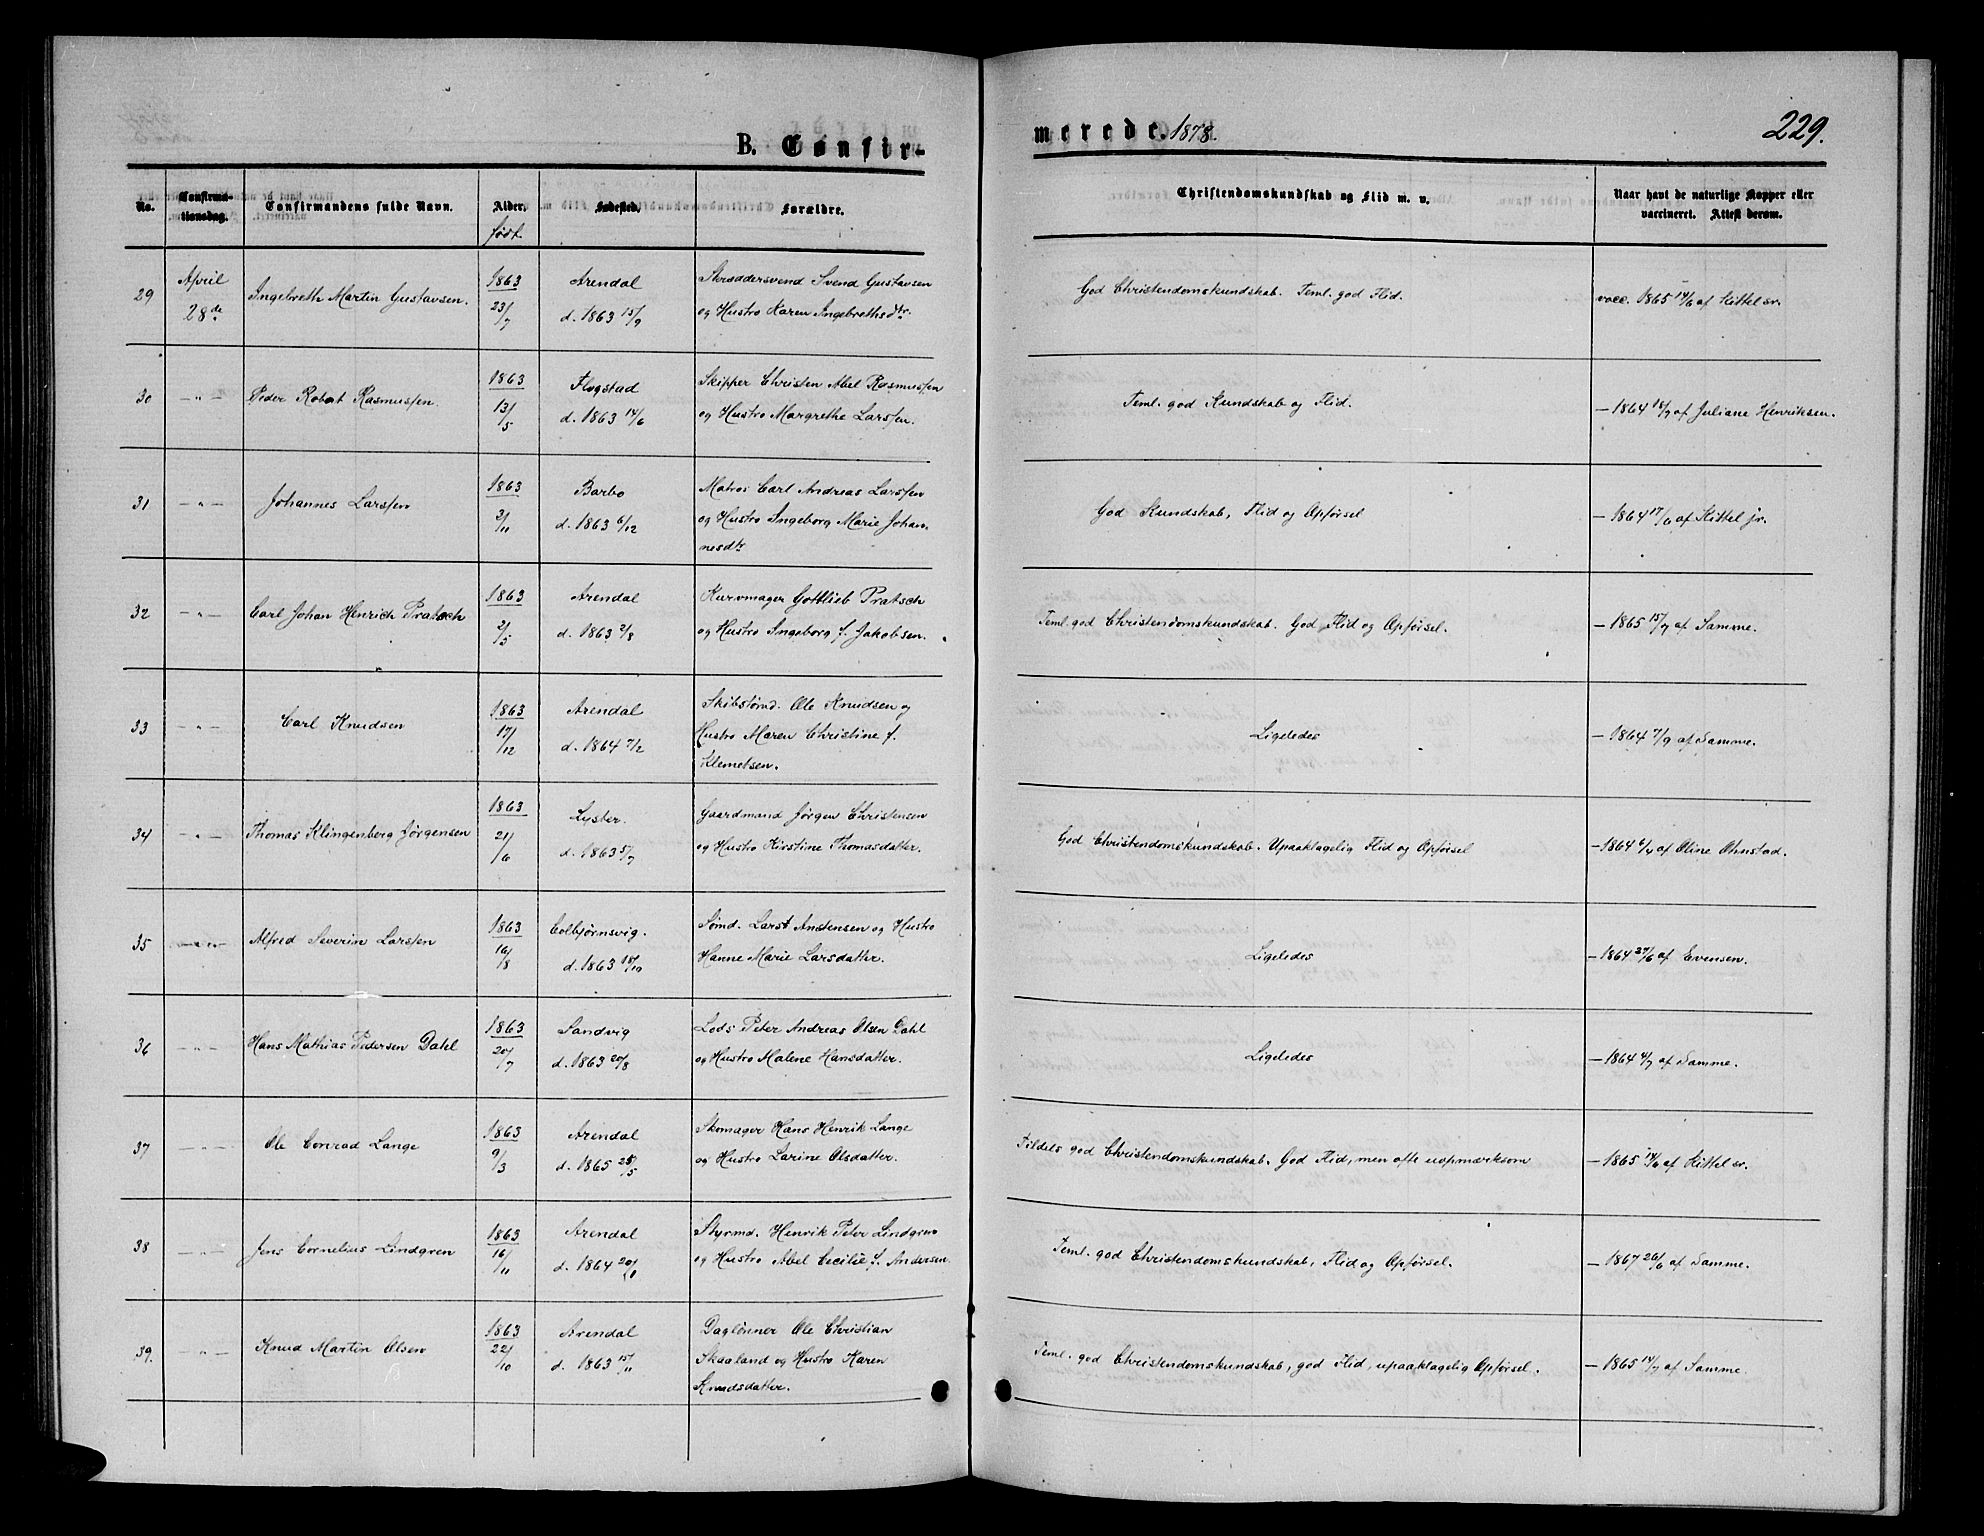 B. Confirmerede. 1878. 229.
No. Confirmationsdag. Confirmandens fulde Navn. Alder. født. Fødested. Forældre. Christendomskundskab og Flid m. v. Naar havt de naturlige Kopper eller vaccineret. Attest derom.
29 April 28de Ingebreth Martin Gustavsen. 1863 23/7 Arendal d. 1863 13/9 Skræddersvend Svend Gustavsen og Hustro Karen Ingebrethsdtr. God Christendomskundskab. Teml. god Flid. vacc. 1865 14/6 af Kittel sr.
30 —"— Peder Robert Rasmussen. 1863 13/5 Flogstad d. 1863 14/6 Skipper Christen Abel Rasmussen og Hustro Margrethe Larssen. Teml. god Kundskab og Flid. — 1864 18/7 af Juliane Henriksen.
31 —"— Johannes Larssen 1863 2/11 Barbo d. 1863 6/12 Matros Carl Andreas Larssen og Hustro Ingeborg Marie Johannesdtr God Kundskab, Flid og Opførsel — 1864 17/6 af Kittel jr.
32 —"— Carl Johan Henrich Pratsch 1863 2/5 Arendal d. 1863 2/8 Kurvmager Gottlieb Pratsch og Hustro Ingeborg f. Jakobsen. Teml. god Christendomskundskab. God Flid og Opførsel. — 1865 15/7 af Samme.
33 —"— Carl Knudsen 1863 17/12 Arendal d. 1864 7/2 Skibstømd. Ole Knudsen og Hustro Maren Christine f. Klemetsen. Ligeledes — 1864 7/9 af Samme.
34 —"— Thomas Klingenberg Jørgensen 1863 21/6 Lyster. d. 1863 5/7 Gaardmand Jørgen Christensen og Hustro Kirstine Thomasdatter. God Christendomskundskab. Upaaklagelig Flid og Opførsel — 1864 6/7 af Oline Ohnstad.
35 —"— Alfred Severin Larssen 1863 16/8 Colbjørnsvig. d. 1863 18/10 Sømd. Larst Anstensen og Hustro Hanne Marie Larsdatter. Ligeledes — 1864 27/6 af Evensen.
36 —"— Hans Mathias Pedersen Dahl 1863 20/7 Sandvig d. 1863 20/8 Lods Peter Andreas Olsen Dahl og Hustro Malene Hansdatter. Ligeledes — 1864 4/7 af Samme.
37 —"— Ole Conrad Lange 1863 9/3 Arendal d. 1865 25/5 Skomager Hans Henrik Lange og Hustro Larine Olsdatter. Tildels god Christendomskundskab. God Flid, men ofte uopmærksom — 1865 14/6 af Kittel sr.
38 —"— Jens Cornelius Lindgren 1863 16/11 Arendal d. 1864 Styrmd. Henrik Peter Lindgren og Hustro Abel Cecilie f. Andersen. Teml. god Christendomskundskab, Flid og Opførsel. — 1867 26/6 af Samme.
39. —"— Knud Martin Olsen 1863 22/10 Arendal d. 1863 15/11 Daglønner Ole Christian Skaaland og Hustro Karen Knudsdatter. Teml. god Christendomskundskab, god Flid, upaaklagelig Opførsel. — 1865 14/7 af Samme.